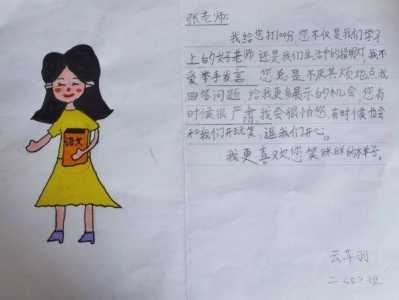 张老师:
我给您打100分,您不仅是我们学习
上的好老师,还是我们生活中的指明灯,我不
爱举手发言,您总是不厌其烦地点我
回答问题,给我更多展示的机会,您有
时候很严肃,我会很怕您,有时候也会
和我们开玩笑,逗我们开心。
我更喜欢您笑眯眯的样子。
语文